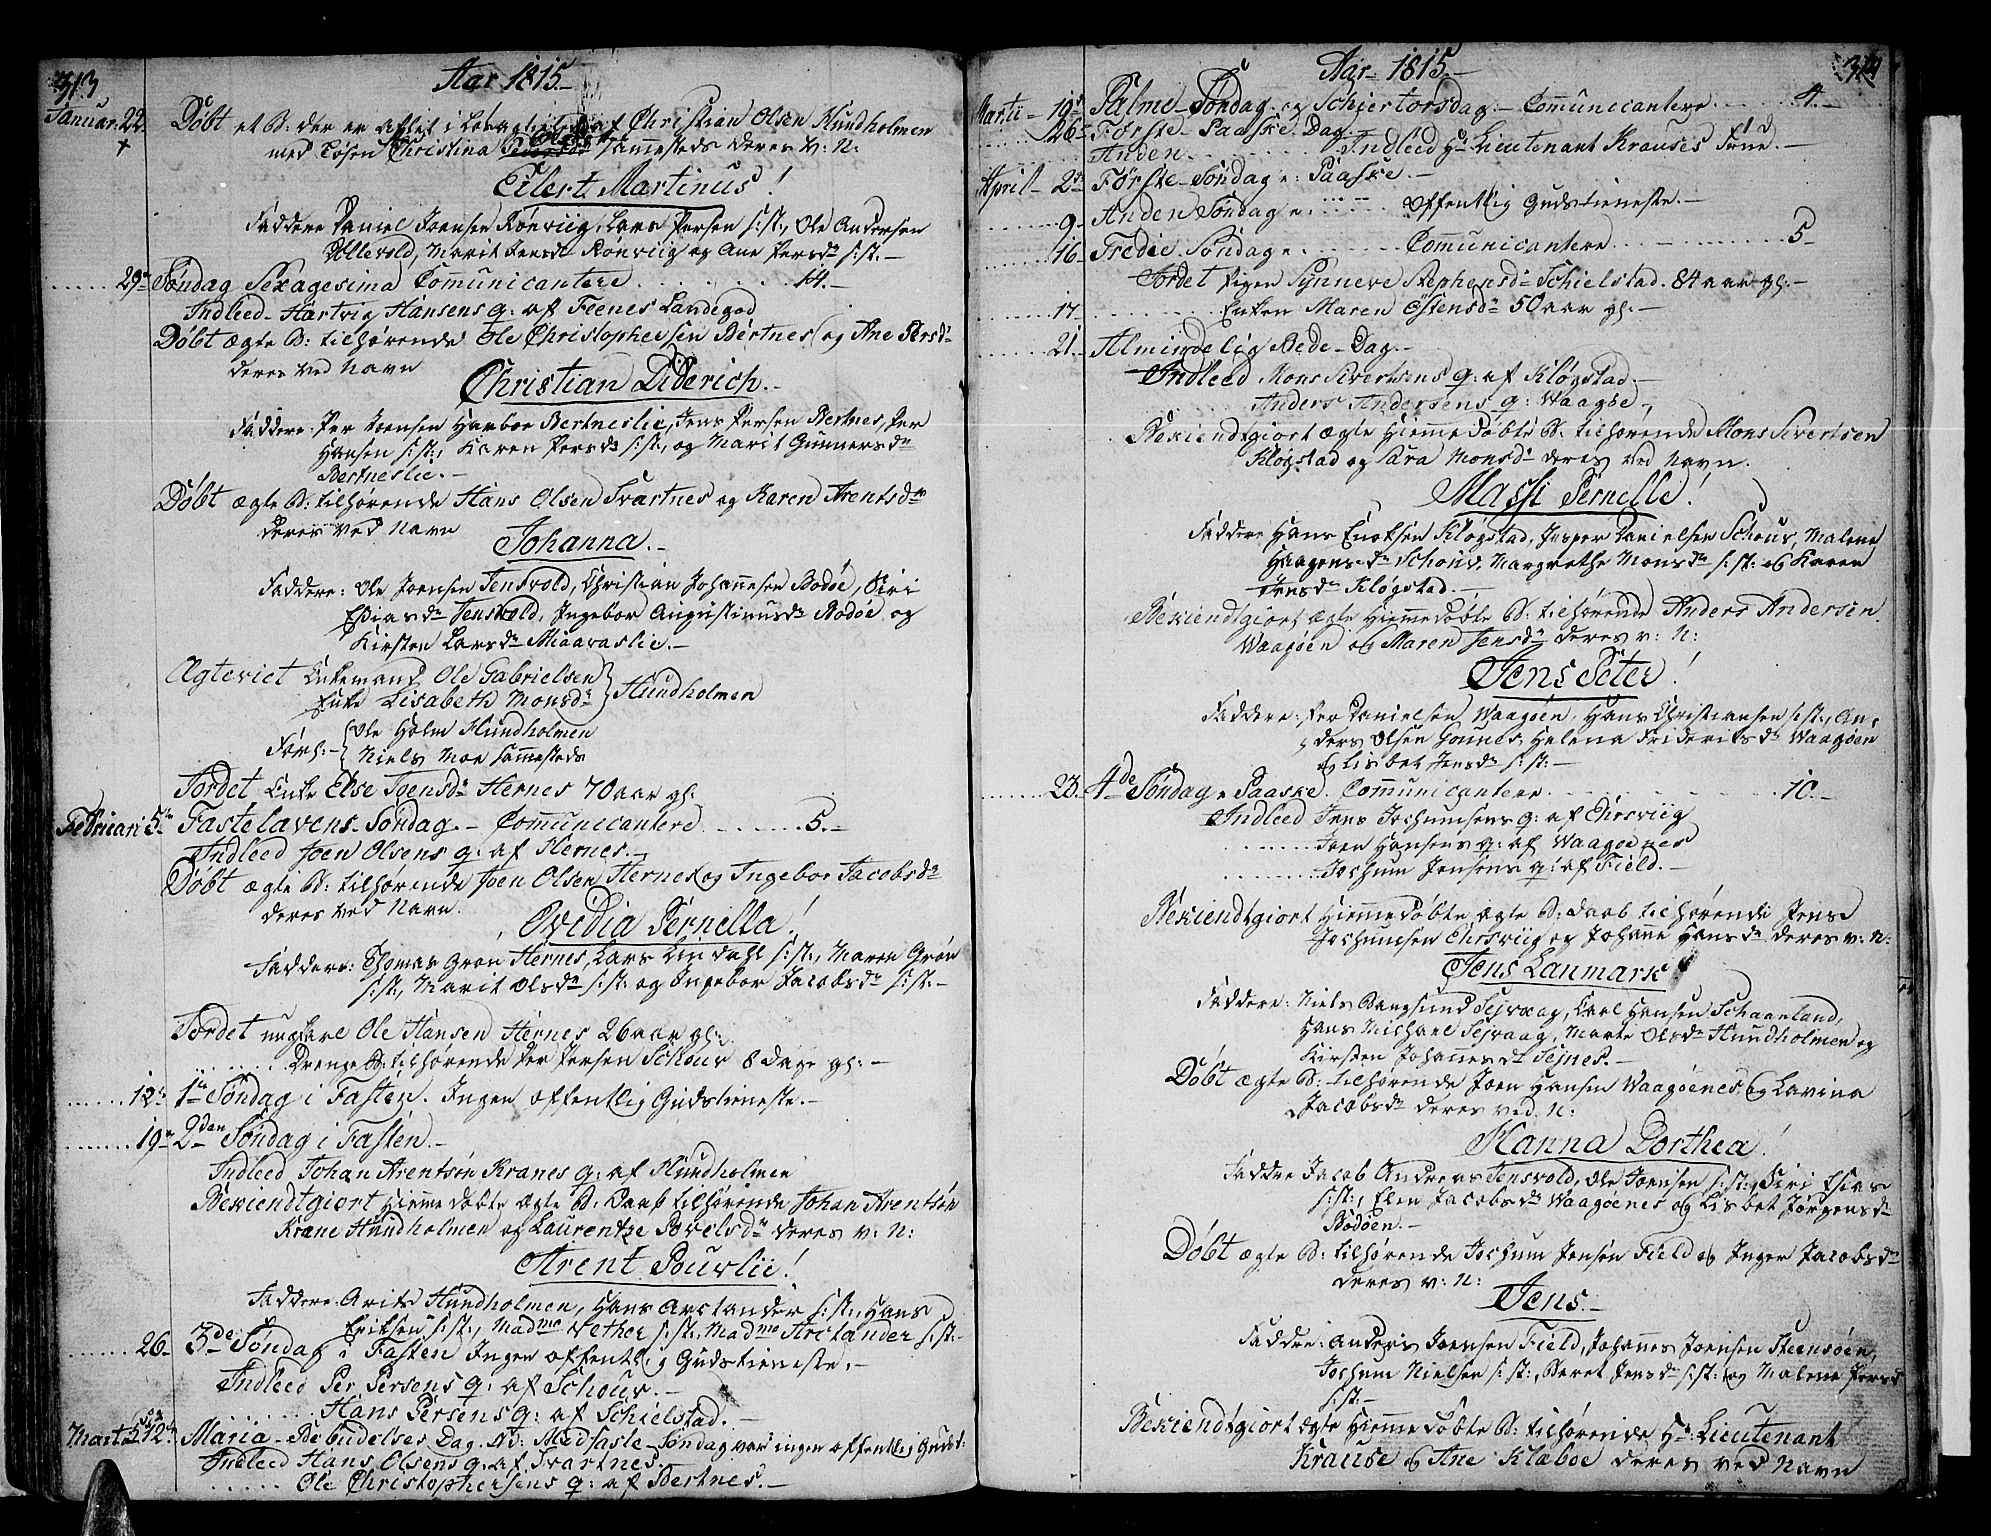 313
Aar 1815
Januar. 22. Døbt et B: der er aflet i Løsagtighed af Christian Olsen Hundholmen
med Tøsen Christina sammesteds deres v: N:
Eilert Martinus!
Faddere Daniel Joensen Rønviig, Lars Persen s:st:, Ole Andersen
Vollevold, Marit Jensd: Rønviig og Ane Persd: s:st.
29 Søndag Sexagesima Communicantere 14.
Indleed Hartvig Hansens q: af Feenes Landegod
Døbt ægte B: tilhørende Ole Christophersen Bertnes og Ane Persd:
deres ved Navn
Christian Diderich.
Faddere: Per Joensen Bertneslie, Jens Persen Bertnes, Per
Hansen s:st:, Karen Persd: s:st:, og Marit Gunnersd:
Bertneslie.
Døbt ægte B: tilhørende Hans Olsen Svartnes og Karen Arentsd:
deres ved Navn
Johanna.
Faddere: Ole Joensen Jensvold, Christian Johannesen Bodøe, Siri
Esiasd: Jensvold, Ingebor Augustinusd: Bodøe og
Kirsten Larsd: Miaavaslie.
Ægteviet Enkemand Ole Gabrielsen
Enke Lisabeth Monsd: Hundholmen
Forl: Ole Holm Hundholmen
Niels Moe sammesteds
Jordet Enke Else Joensd: Hernes 70 aar gl:
Februari 5 Fastelavens Søndag. Communicantere 5.
Indleed Joen Olsens q: af Hernes.
Døbt ægte B: tilhørende Joen Olsen Hernes og Ingebor Jacobsd:
deres ved Navn.
Ovidia Pernella!
Faddere: Thomas Grøn Hernes, Lars Lindahl s:st:, Maren Grøn
s:st:, Marit Olsd: s:st: og Ingebor Jacobsd: s:st:
Jordet ungkarl Ole Hansen Hernes 26 aar gl:
Drenge B: tilhørende Per Persen Schous 8 Dage gl:
12 1 Søndag i Fasten. Ingen offentlig Gudstieneste.
19 2den Søndag i Fasten.
Indleed Johan Arentsøn Kranes q: af Hundholmen
Bekiendtgiort Hiemmedøbte ægte B: Daab tilhørende Johan Arentsøn
Krane Hundholmen og Laurentze Povelsd: deres v: N:
Arent Pouvlie!
Faddere: Hundholmen, Hans Arctander s:st:, Hans
Eriksen s:st:, Madme Vether s:st:, Madme Arctander s:st:
26 3de Søndag i Fasten Ingen offentlig Gudstieneste.
Indleed Per Persens q: af Schous.
Hans Persens q: af Schielstad.
Marts 5 og 12 Maria Bebudelses Dag. Midfaste Søndag var ingen offentlig Gudst:
Indleed Hans Olsens q: af Svartnes.
Ole Christophersens q: af Bertnes.
314
Aar 1815.
Marti 19 Palme Søndag og Schiertorsdag. Communicantere 4.
26 Første Paaske Dag.
Anden Indleed Hr Lieutenant Krauses Frue.
April 2 Første Søndag e: Paaske.
9 Anden Søndag e: offentlig Gudstieneste.
16 Tredie Søndag e: Communicantere 5
Jordet Pigen Synneve Stephensd: Schielstad. 84 aar gl:
17 Enken Maren Østensd: 50 aar gl:
21 Almindelig Bede Dag.
Indleed Mons Sivertsens q: af Kløgstad.
Anders Andersens q: Waagøe.
Bekiendtgiort ægte Hiemmedøbte B: tilhørende Mons Sivertsen
Kløgstad og Sara Monsd: deres ved Navn.
Massi Pernelle!
Faddere Hans Enoksen Kløgstad, Jesper Danielsen Schous, Malene
Haagensd: Schous, Margrethe Monsd: s:st: og Karen
Jensd: Kløgstad.
Bekiendtgiort ægte Hiemmedøbte B: tilhørende Anders Andersen
Waagøen og Maren Jensd: deres v: N:
Jens Peter!
Faddere: Per Danielsen Waagøen, Hans Christiansen s:st:, An-
ders Olsen Jonnes, Helena Frideriksd: Waagøen
og Lisbet Jensd: s:st:
23 4de Søndag e Paaske. Communicantere 10.
Indleed Jens Jochumsens q: af Ehrsviig
Joen Hansens q: af Waagøenes
Jochum Jensens q: af Field.
Bekiendtgiort Hiemmedøbte ægte B: Daab tilhørende Jens
Jochumsen Ehrsviig og Johanne Hansd: deres v: N:
Jens Lanmark!
Faddere: Niels Bangsund Sejvaag, Carl Hansen Schaanland,
Hans Michael Sejvaag, Marte Olsd: Hundholmen og
Kirsten Johannesd: Sejnes.
Døbt ægte B: tilhørende Joen Hansen Waagøenes og Lavina
Jacobsd: deres ved. N:
Hanna Dorthea!
Faddere Jacob Andreas Jensvold, Ole Joensen s:st:, Siri Esias
s:st:, Elen Jacobsd: Waagøenes og Lisbet Jørgensd:
Bodøen.
Døbt ægte B: tilhørende Jochum Jensen Field og Inger Jacobsd:
deres v: N:
Jens
Faddere: Anders Joensen Field, Johannes Joensen Steensøen,
Jochum Nielsen s:st:, Beret Jensd: s:st: og Malene Persd
s:st:
Bekiendtgiort ægte Hiemmedøbte B: tilhørende Hr Lieutenant
Krause og Ane Klæboe deres ved Navn